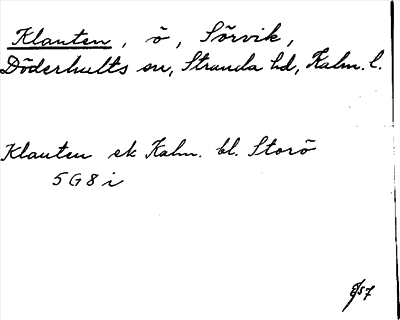 Klauten, ö, Sörvik,
Döderhults sn, Stranda hd, Kalm. l.
Klauten ek Kalm. bl. Storö
5G8i
57